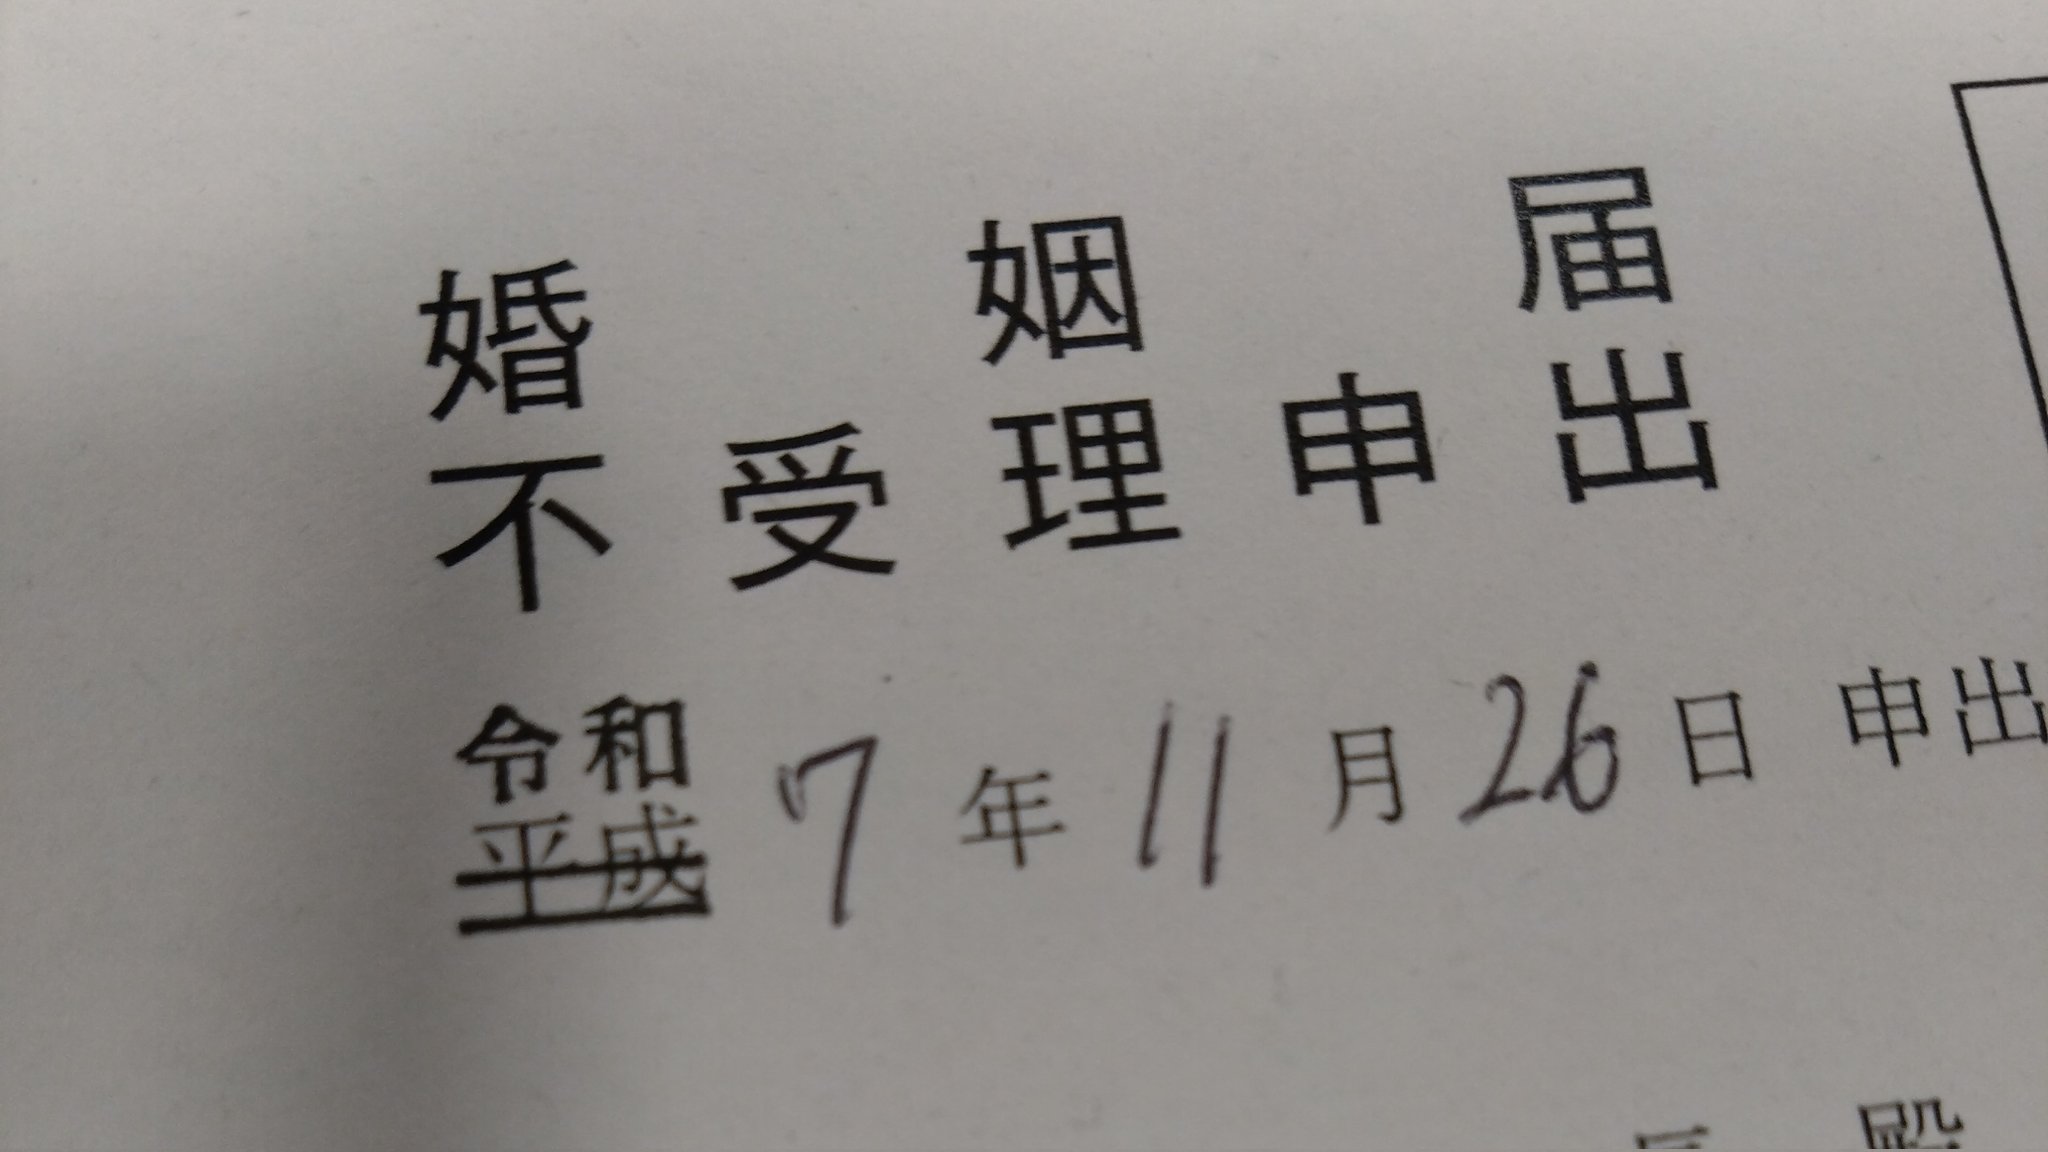 婚姻届
不受理申出
令和
平成 7年11月26日申出
殿